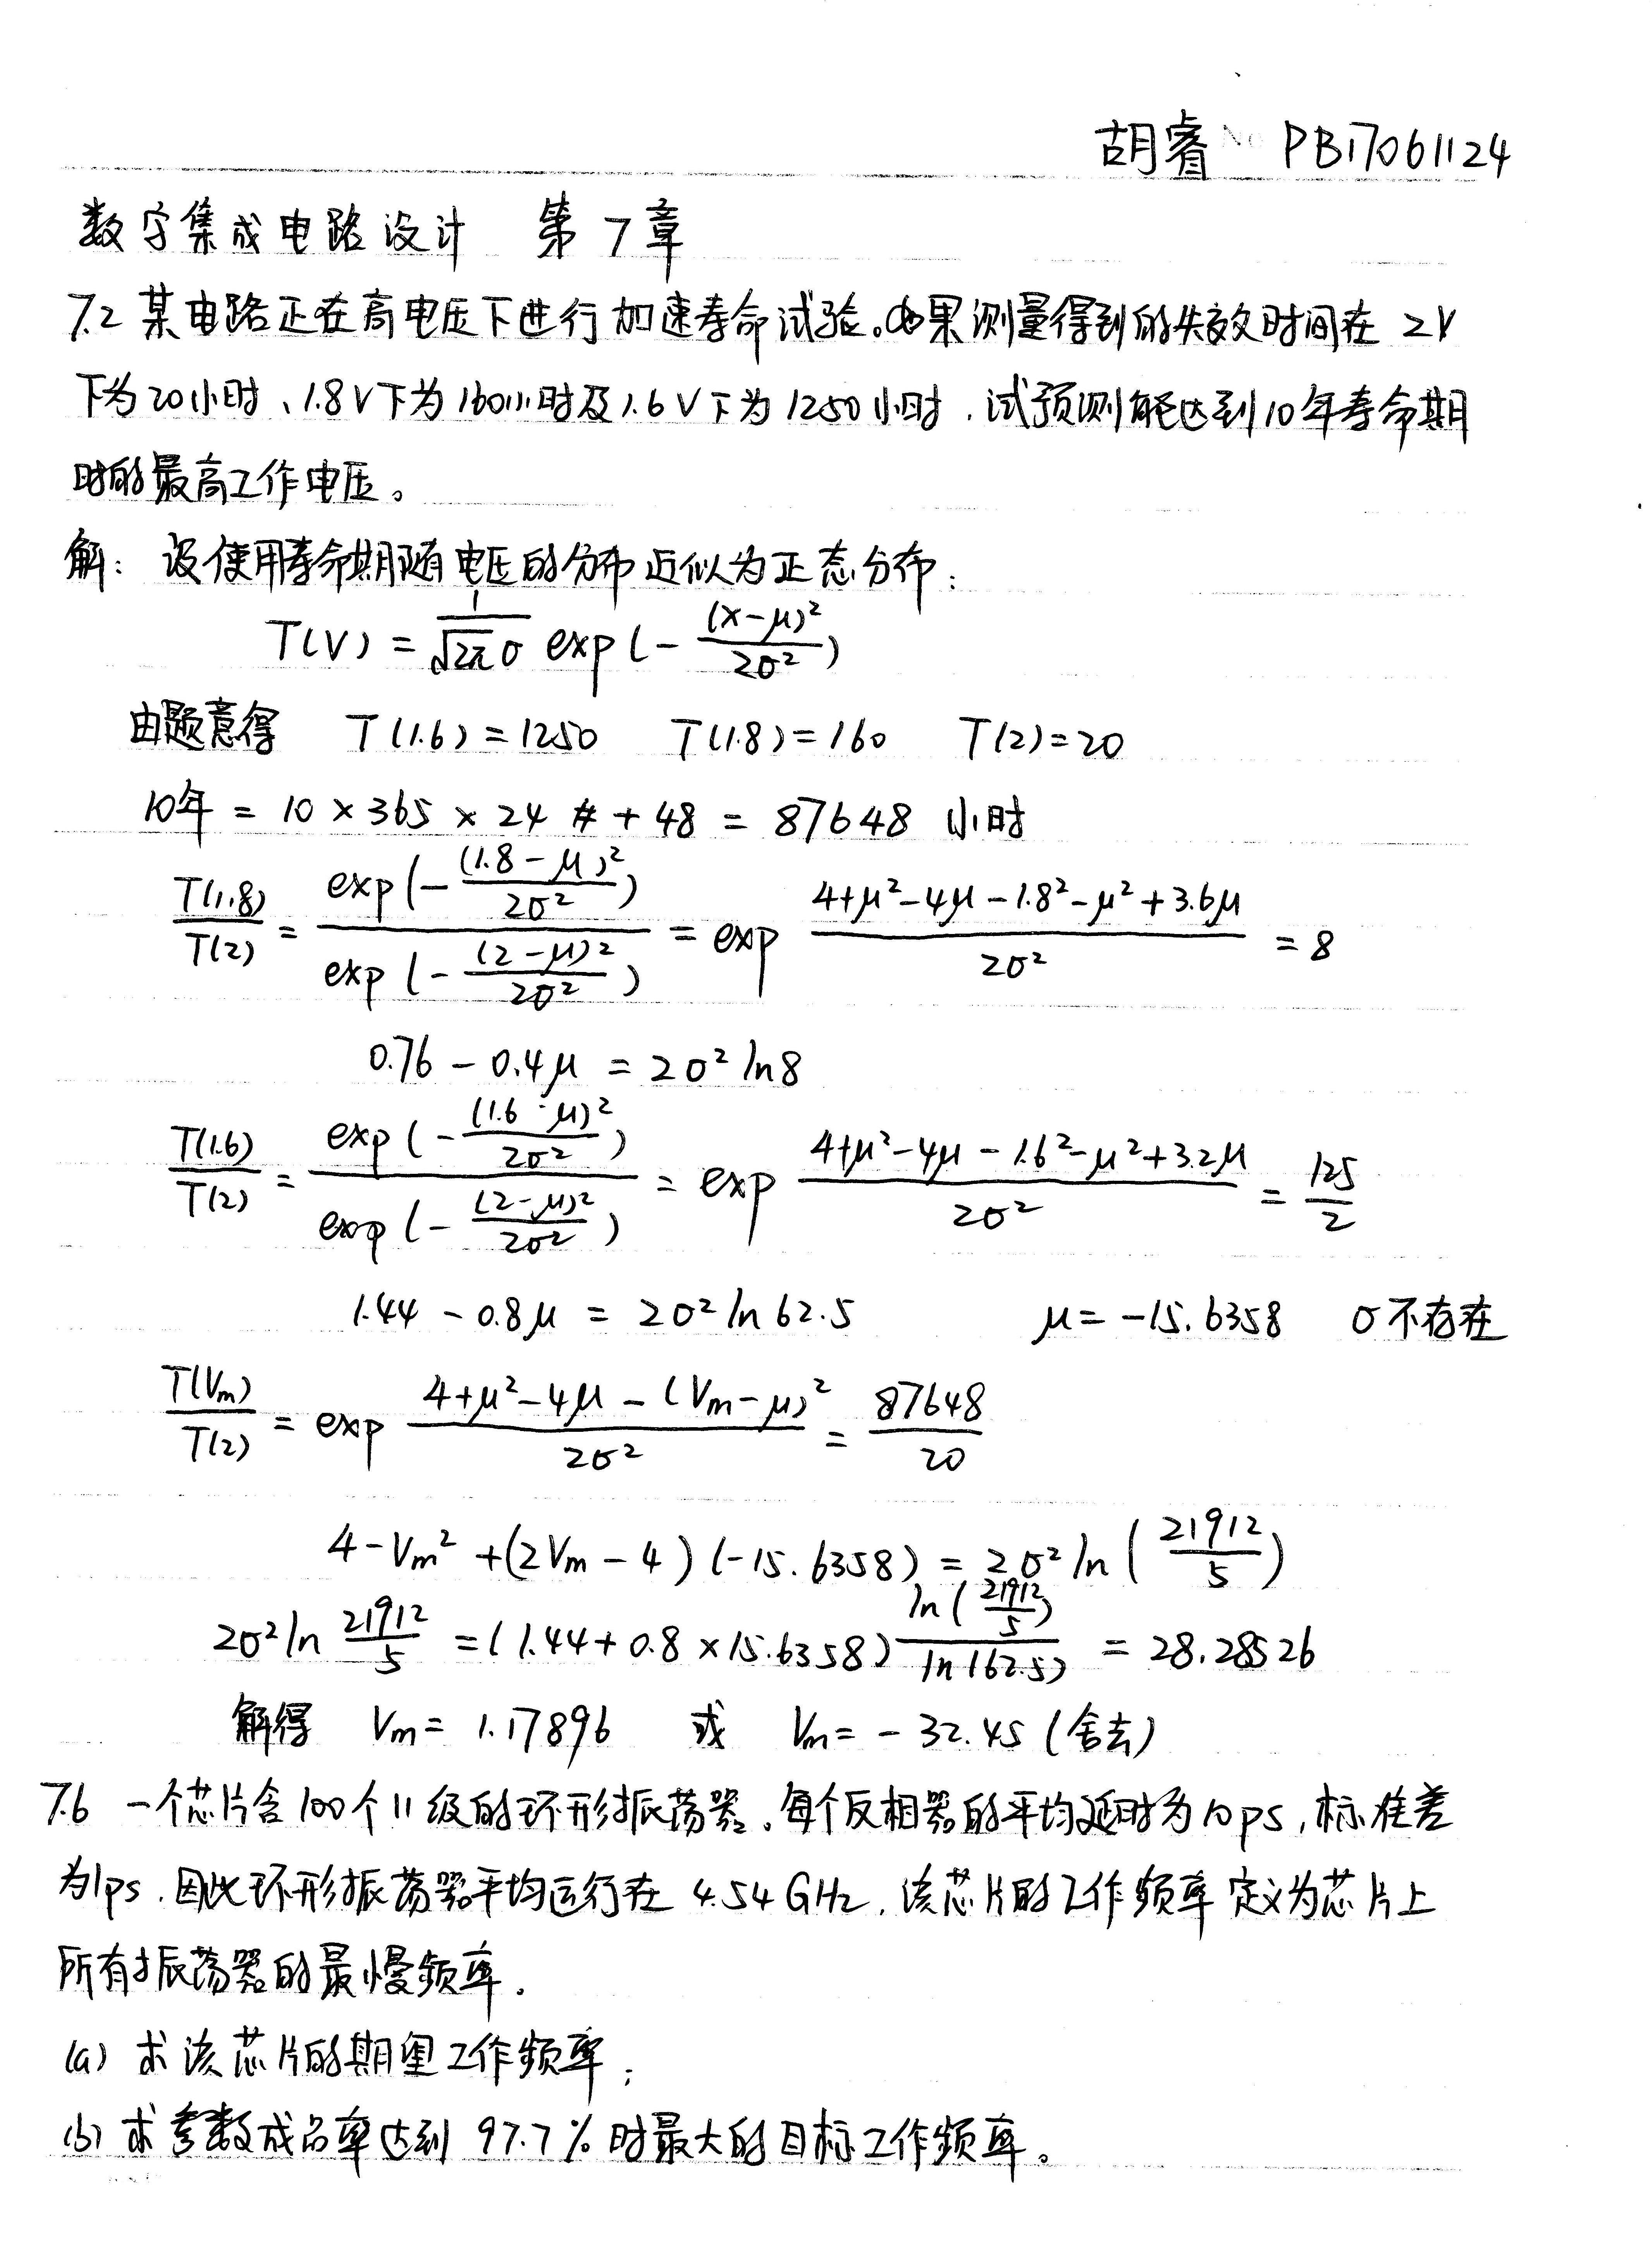 胡睿 No PB17061124
数字集成电路设计 第7章
7.2 某电路正在高电压下进行加速寿命试验。如果测量得到的失效时间在 2V
下为20小时、1.8V下为160小时及1.6V下为1250小时,试预测能达到10年寿命期
时的最高工作电压。
解: 设使用寿命期随电压的分布近似为正态分布:
T(V) = \frac{1}{\sqrt{2π}σ} exp(-\frac{(x-μ)^2}{2σ^2})
由题意得 T(1.6)=1250 T(1.8)=160 T(2)=20
10年 = 10 × 365 × 24 + 48 = 87648 小时
\frac{T(1.8)}{T(2)} = \frac{exp(-\frac{(1.8-μ)^2}{2σ^2})}{exp(-\frac{(2-μ)^2}{2σ^2})} = exp \frac{4+μ^2-4μ-1.8^2-μ^2+3.6μ}{2σ^2} = 8
0.76 - 0.4μ = 2σ^2 ln8
\frac{T(1.6)}{T(2)} = \frac{exp(-\frac{(1.6-μ)^2}{2σ^2})}{exp(-\frac{(2-μ)^2}{2σ^2})} = exp \frac{4+μ^2-4μ-1.6^2-μ^2+3.2μ}{2σ^2} = \frac{125}{2}
1.44 - 0.8μ = 2σ^2 ln 62.5 μ = -15.6358 σ不存在
\frac{T(V_m)}{T(2)} = exp \frac{4+μ^2-4μ-(V_m-μ)^2}{2σ^2} = \frac{87648}{20}
4-V_m^2+(2V_m-4)(-15.6358) = 2σ^2 ln(\frac{21912}{5})
2σ^2 ln \frac{21912}{5} = (1.44+0.8×15.6358)\frac{ln(\frac{21912}{5})}{ln(62.5)} = 28.28526
解得 V_m = 1.17896 或 V_m = -32.45 (舍去)
7.6 一个芯片含100个11级的环形振荡器。每个反相器的平均延时为10ps,标准差
为1ps,因此环形振荡器平均运行在 4.54GHz,该芯片的工作频率定义为芯片上
所有振荡器的最慢频率.
(a) 求该芯片的期望工作频率;
(b) 求参数成品率达到 97.7% 时最大的目标工作频率。